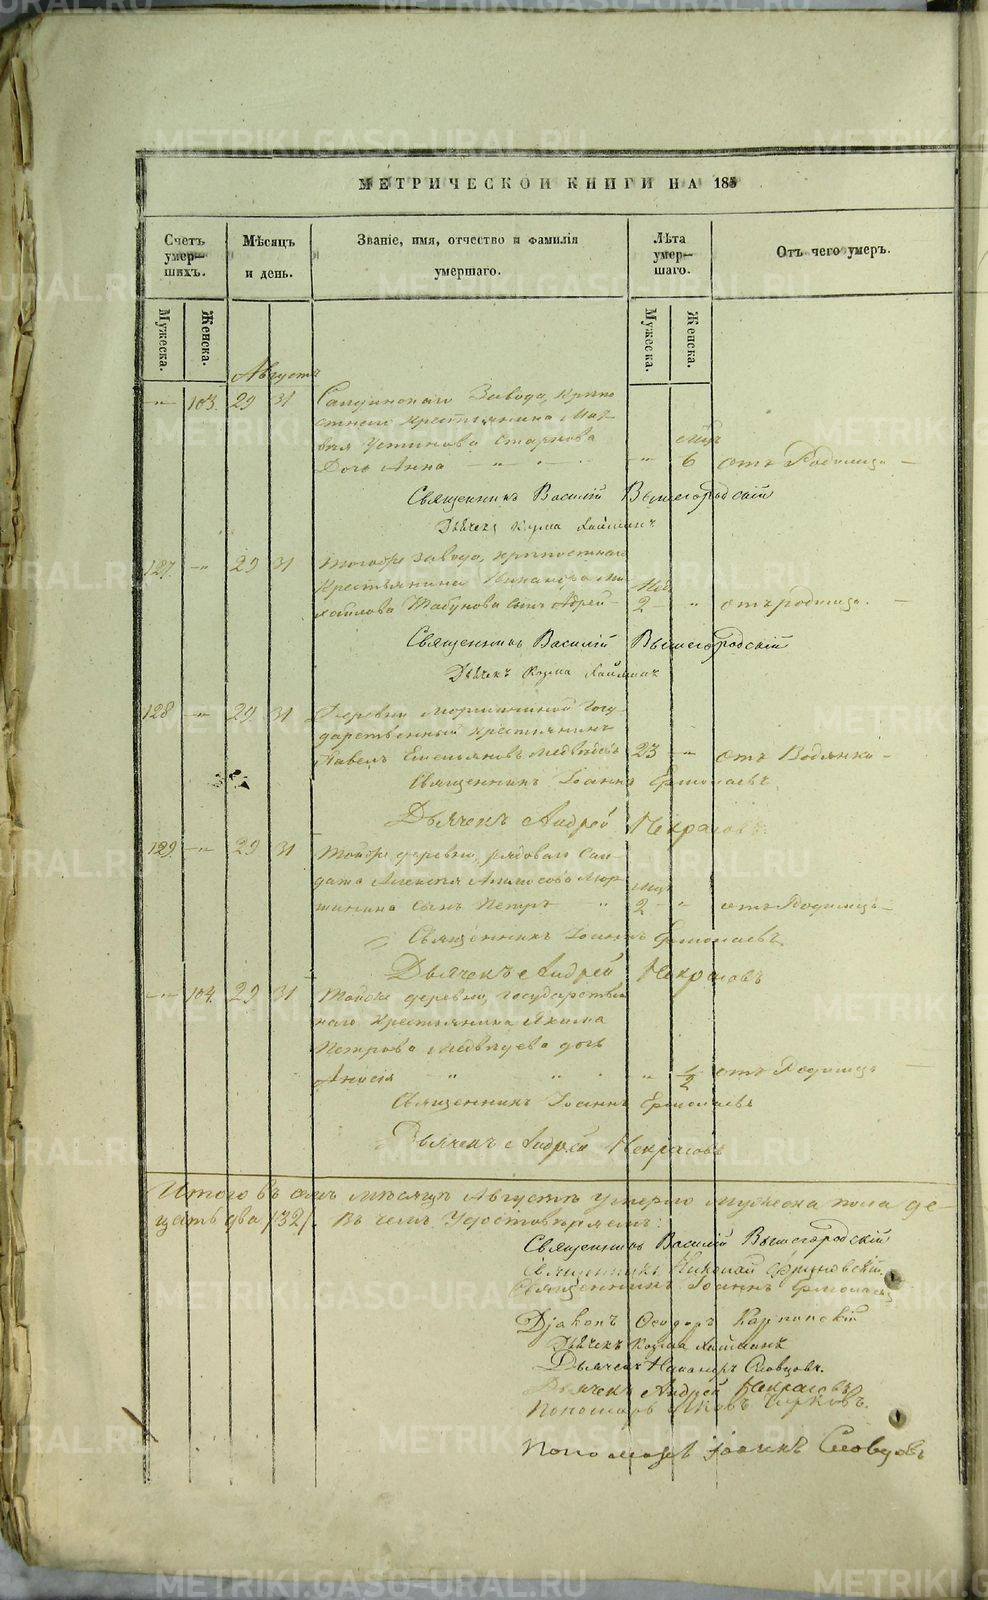 METRIKI.GASO-URAL.RU
МЕТРИЧЕСКОЙ КНИГИ НА 185
Счетъ умер-шихъ.
Мѣсяцъ и день.
Званіе, имя, отчество и фамилія умершаго.
Лѣта умер-шаго.
Отъ чего умеръ.
Мужеска.
Женска.
Мужеска.
Женска.
Августъ
" 103. 29 31 Салдинскаго Завода, крѣпо
стнаго крестьянина Мат-
вѣя Устинова Старкова мѣс.
Дочь Анна " " " 6 отъ Родимца
Священникъ Василій Вышегородскій
Дьячекъ Козма
127. " 29 31 Тогоже завода, крѣпостнаго
Крестьянина Ми- Нед.
хайлова Табунова сынъ Андрей 2 " отъ родимца.
Священникъ Василій Вышегородскій
Дьячекъ Козма
128 " 29 31 Деревни Госу-
дарственный крестьянинъ
Павелъ Емельяновъ Медвѣдевъ 23 " отъ Водянки
Священникъ Іоаннъ Ермолаевъ
Дьячекъ Андрей Некрасовъ
129. " 29 31 Тойже деревни, рядоваго Сол-
дата Алексѣя Мор- мѣс.
шинина сынъ Петръ " 2 " отъ Родимца
Священникъ Іоаннъ Ермолаевъ
Дьячекъ Андрей Некрасовъ
" 104. 29 31 Тойже деревни, государствен
наго крестьянина Якима
Петрова Медвѣдева дочь
Анисія " " " 1/2 отъ Родимца
Священникъ Іоаннъ Ермолаевъ
Дьячекъ Андрей Некрасовъ
Итого въ семъ мѣсяцѣ Августѣ умерло мужеска пола
два /32/. Въ чемъ удостовѣряемъ:
Священникъ Василій Вышегородскій
Священникъ Николай
Священникъ Іоаннъ Ермолаевъ
Діаконъ Ѳеодоръ Карпинскій
Дьячекъ Козма
Дьячекъ Никаноръ Словцовъ.
Дьячекъ Андрей Некрасовъ
Пономарь Яковъ Чирковъ.
Пономарь Іоаннъ Словцовъ